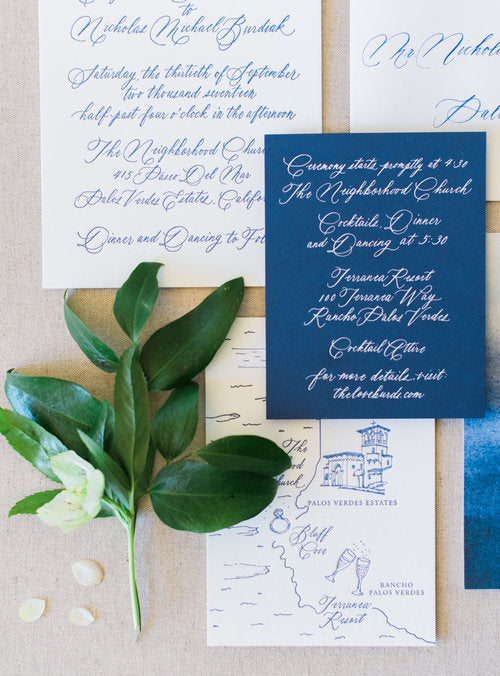 to
Nicholas Michael Burdiak
Saturday, the thirtieth of September
two thousand seventeen
half past four o'clock in the afternoon
The Neighborhood Church
415 Paseo Del Mar
Palos Verdes Estates, Califo
Dinner and Dancing to Fol
Mr Nichola
Ceremony starts promptly at 4:30
The Neighborhood Church
Cocktails, Dinner
and Dancing at 5:30
Terranea Resort
100 Terranea Way
Rancho Palos Verdes
Cocktail Attire
for more details visit:
theloveburds.com
The
Church
PALOS VERDES ESTATES
Bluff
Cove
RANCHO
PALOS VERDES
Terranea
Resort